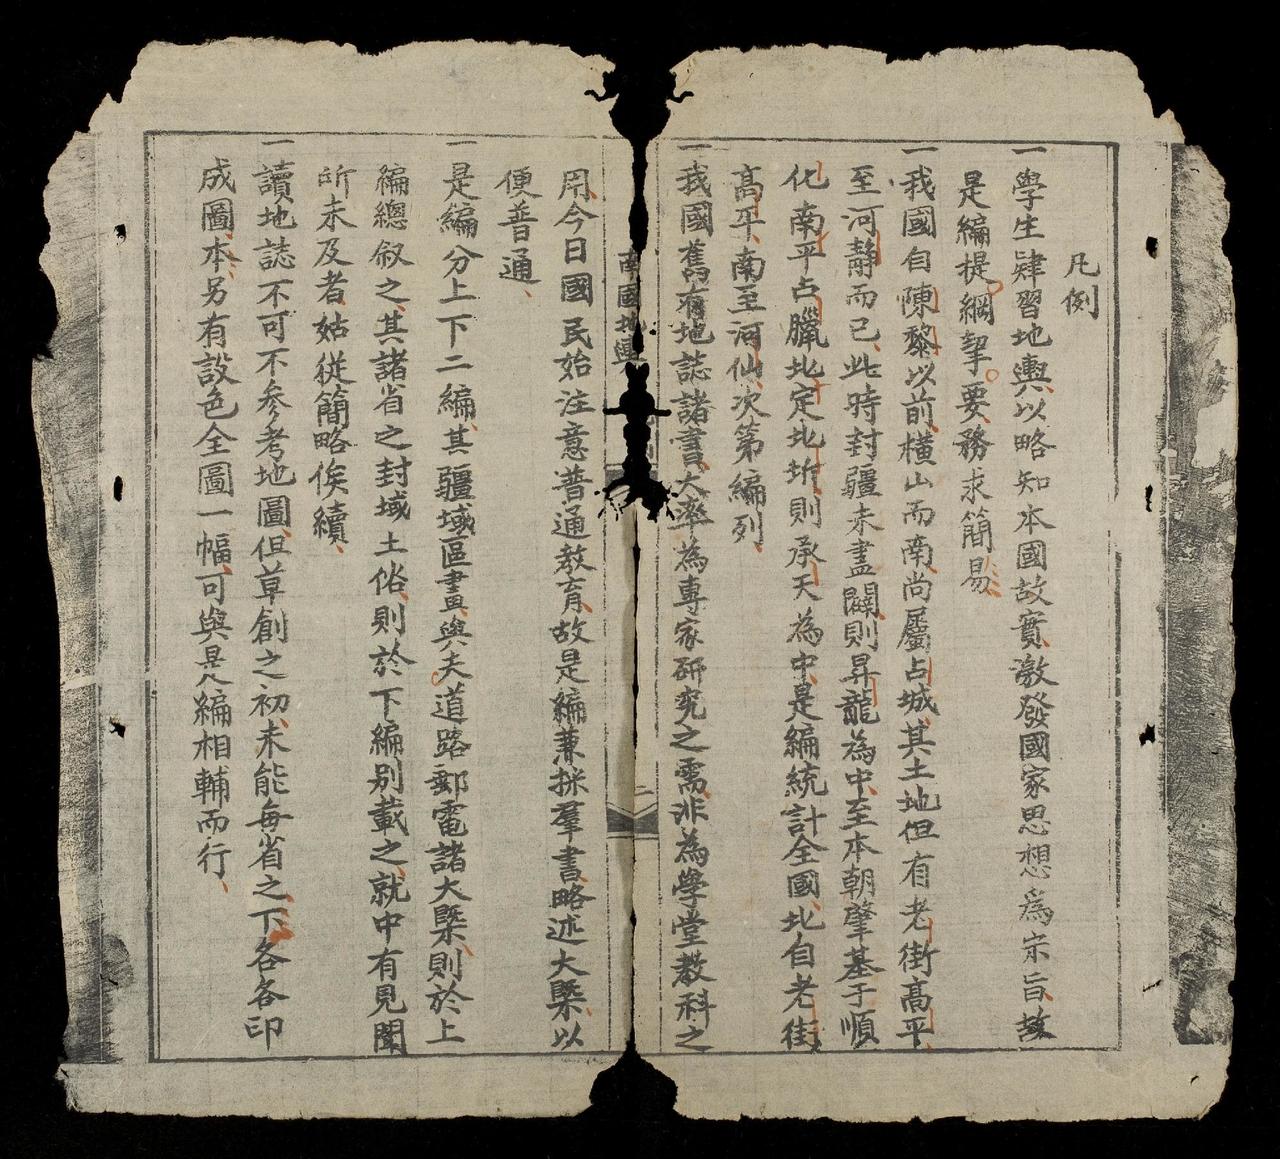 凡例
一學生肄習地輿、以略知本國故實、激發國家思想爲宗旨、故
是編提綱挈要、務求簡易、
一我國自陳黎以前、橫山而南、尚屬占城、其土地但有老街高平
至河靜而已、此時封疆未盡闢、則昇龍為中、至本朝肇基于順
化、南平占臘、北定北圻、則承天為中、是編統計全國、北自老街
高平、南至河仙、次第編列、
一我國舊有地誌諸書、大率為專家研究之需、非為學堂教科之
南國地輿
二
用、今日國民始注意普通教育、故是編兼採羣書、略述大槩、以
便普通、
一是編分上下二編、其疆域區畫、與夫道路郵電諸大槩、則於上
編總叙之、其諸省之封域土俗、則於下編別載之、就中有見聞
所未及者、姑從簡略俟續、
一讀地誌不可不參考地圖、但草創之初、未能每省之下各各印
成圖本、另有設色全圖一幅、可與是編相輔而行、